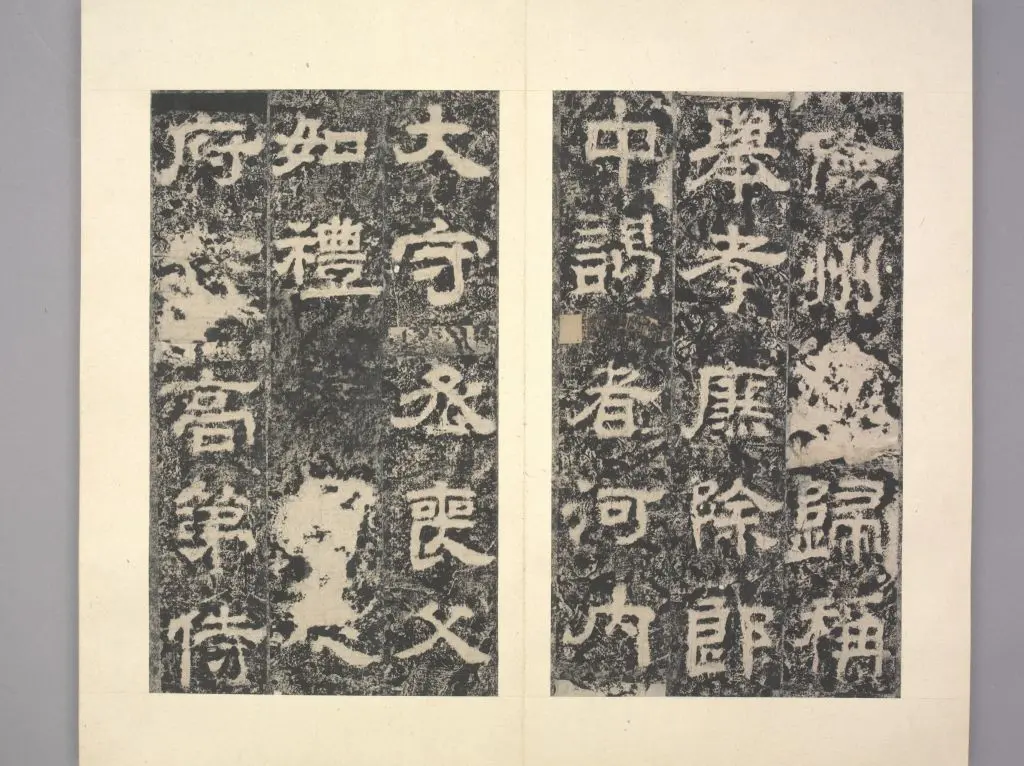 儉州歸稱
舉孝廉除郎
中謁者河内
大守丞喪父
如禮
府高第侍